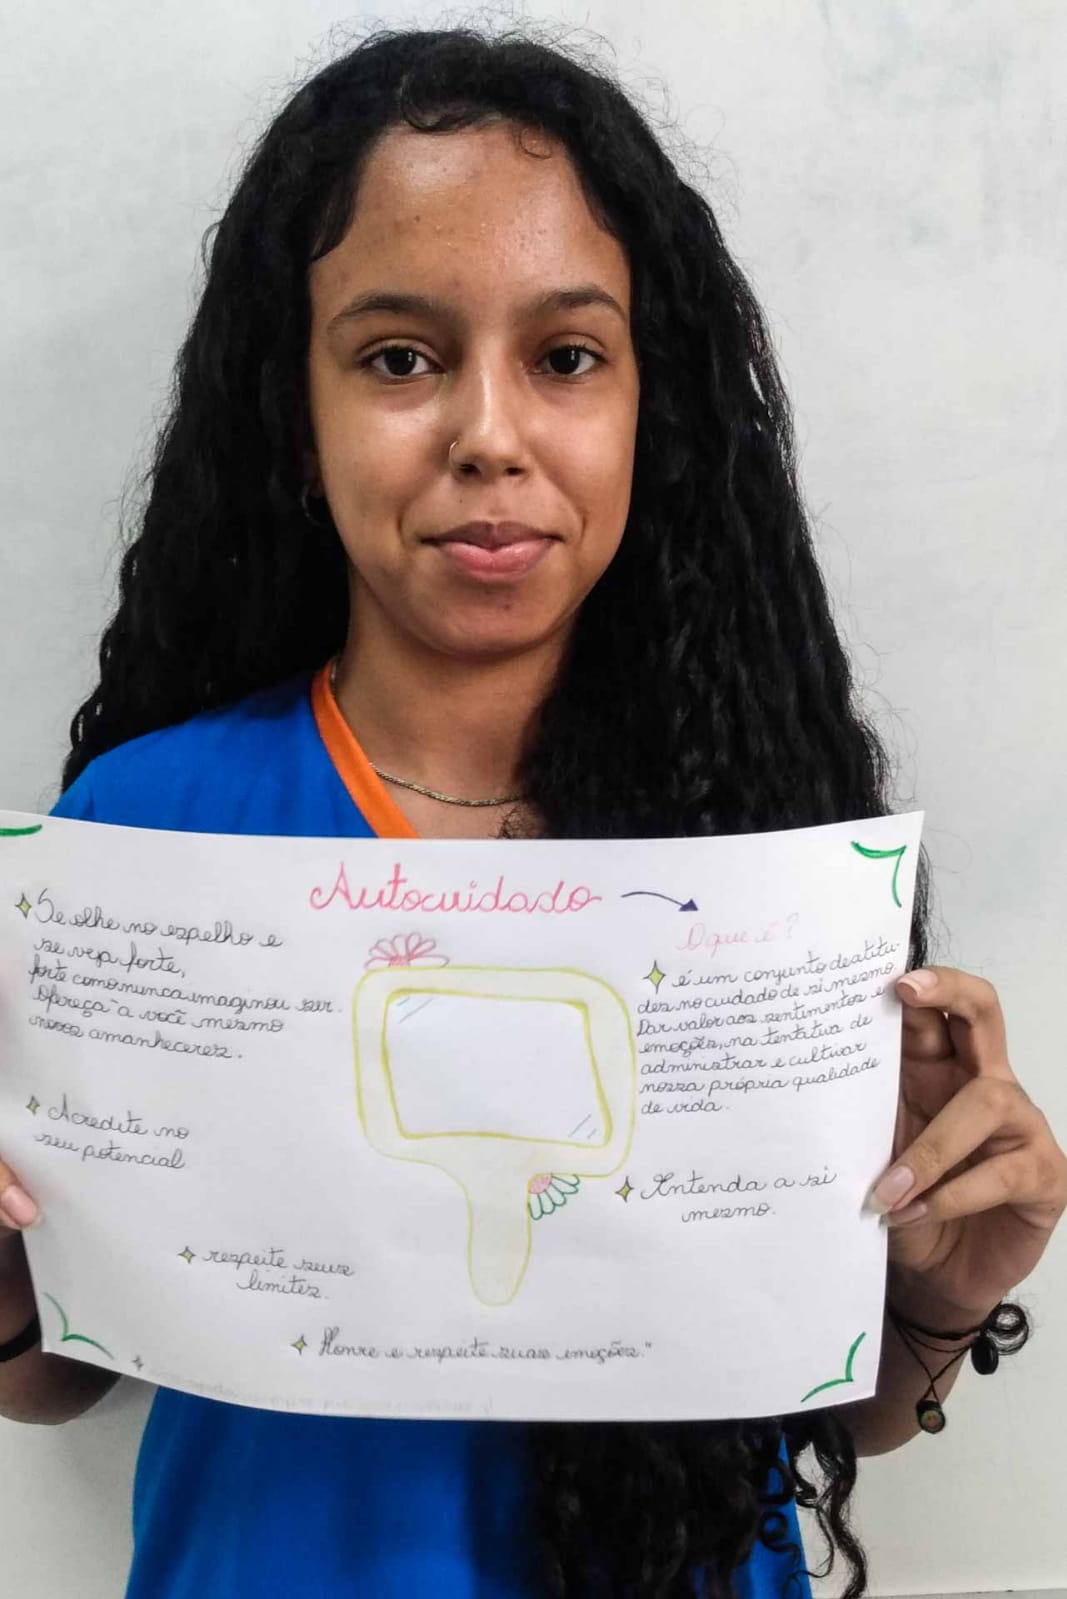 Autocuidado
Se olhe no espelho e
se veja forte,
forte como nunca imaginou ser.
Ofereça à você mesmo
novos amanheceres.
Acredite no
seu potencial
respeite seus
limites.
Honre e respeite suas emoções."
O que é?
é um conjunto de atitu-
des no cuidado de si mesmo.
Dar valor aos sentimentos e
emoções, na tentativa de
administrar e cultivar
nossa própria qualidade
de vida.
Entenda a si
mesmo.